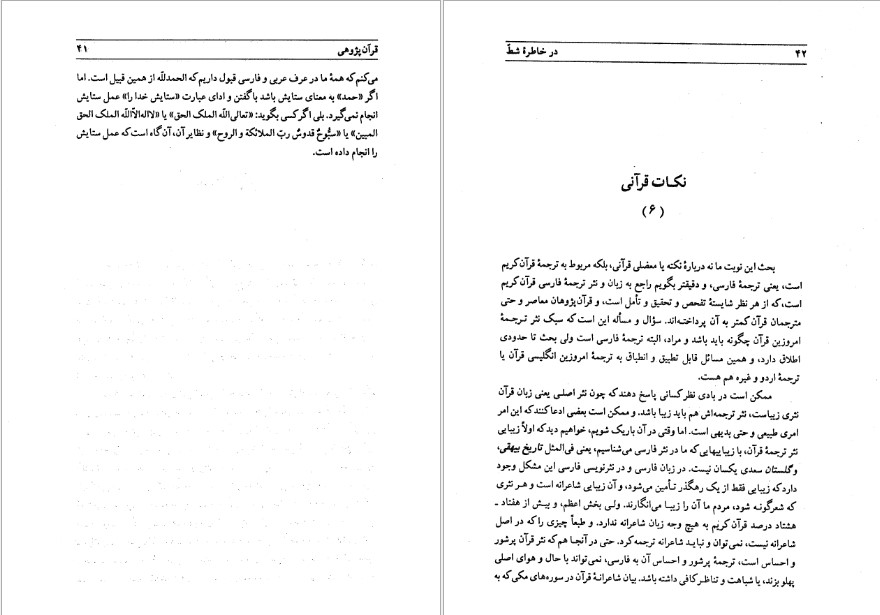 قرآن پژوهی ۴۱
می‌کنم که همهٔ ما در عرف عربی و فارسی قبول داریم که الحمدللّه از همین قبیل است. اما
اگر «حمد» به معنای ستایش باشد با گفتن و ادای عبارت «ستایش خدا را» عمل ستایش
انجام نمی‌گیرد. بلی اگر کسی بگوید: «تعالی‌اللّه الملک الحق» یا «لااله‌الاّ اللّه الملک الحق
المبین» یا «سبُّوحٌ قدوسٌ ربّ الملائکة و الروح» و نظایر آن، آن گاه است که عمل ستایش
را انجام داده است.
۴۲ در خاطرهٔ شطّ
نکـات قرآنی
(۶)
بحث این نوبت ما نه دربارهٔ نکته یا معضلی قرآنی، بلکه مربوط به ترجمهٔ قرآن کریم
است، یعنی ترجمهٔ فارسی، و دقیقتر بگویم راجع به زبان و نثر ترجمهٔ فارسی قرآن کریم
است، که از هر نظر شایستهٔ تفحص و تحقیق و تأمل است، و قرآن‌پژوهان معاصر و حتی
مترجمان قرآن کمتر به آن پرداخته‌اند. سؤال و مسأله این است که سبک نثر ترجمهٔ
امروزین قرآن چگونه باید باشد و مراد، البته ترجمهٔ فارسی است ولی بحث تا حدودی
اطلاق دارد، و همین مسائل قابل تطبیق و انطباق به ترجمهٔ امروزین انگلیسی قرآن یا
ترجمهٔ اردو و غیره هم هست.
ممکن است در بادی نظر کسانی پاسخ دهند که چون نثر اصلی یعنی زبان قرآن
نثری زیباست، نثر ترجمه‌اش هم باید زیبا باشد. و ممکن است بعضی ادعا کنند که این امر
امری طبیعی و حتی بدیهی است. اما وقتی در آن باریک شویم، خواهیم دید که اولاً زیبایی
نثر ترجمهٔ قرآن، با زیباییهایی که ما در نثر فارسی می‌شناسیم، یعنی فی‌المثل تاریخ بیهقی،
و گلستان سعدی یکسان نیست. در زبان فارسی و در نثرنویسی فارسی این مشکل وجود
دارد که زیبایی فقط از یک رهگذر تأمین می‌شود، و آن زیبایی شاعرانه است و هر نثری
که شعرگونه شود، مردم ما آن را زیبا می‌انگارند. ولی بخش اعظم، و بیش از هفتاد ـ
هشتاد درصد قرآن کریم به هیچ وجه زبان شاعرانه ندارد. و طبعاً چیزی را که در اصل
شاعرانه نیست، نمی‌توان و نباید شاعرانه ترجمه کرد. حتی در آنجا هم که نثر قرآن پرشور
و احساس است، ترجمهٔ پرشور و احساس آن به فارسی، نمی‌تواند با حال و هوای اصلی
پهلو بزند، یا شباهت و تناظر کافی داشته باشد. بیان شاعرانهٔ قرآن در سوره‌های مکی که به